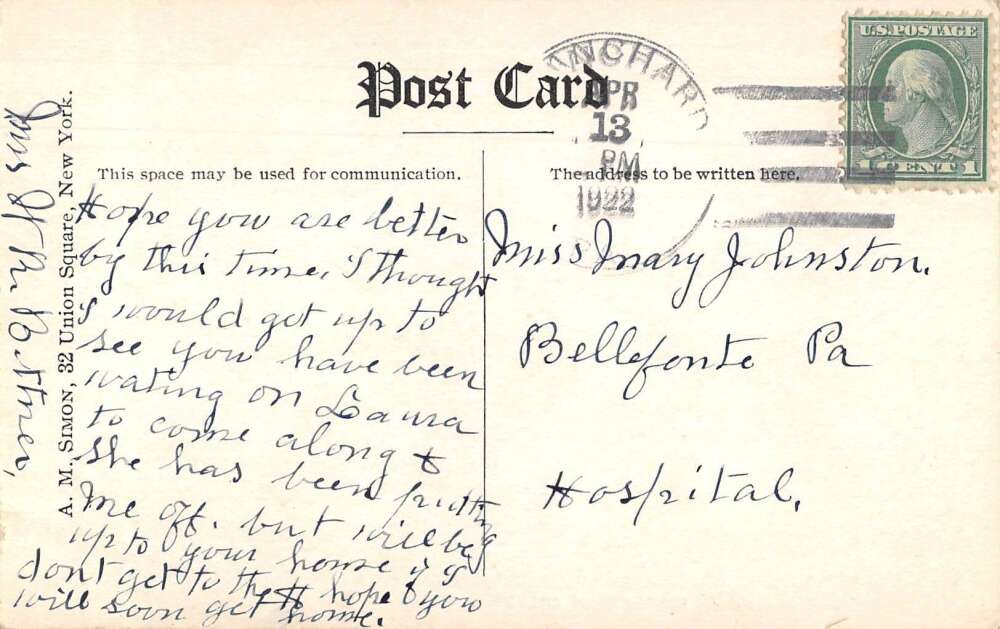 Post Card
BLANCHARD
APR
13
PM
1922
U.S. POSTAGE
1 CENT 1
This space may be used for communication.
The address to be written here.
Hope you are better
by this time. I thought
I would get up to
see you have been
wating on Laura
to come along &
she has been putting
me off. but will be
up to your home if I
dont get to the H hope you
will soon get home.
Mrs H. N. Bittner,
A. M. SIMON, 32 Union Square, New York.
Miss Mary Johnston.
Bellefonte Pa
Hospital.